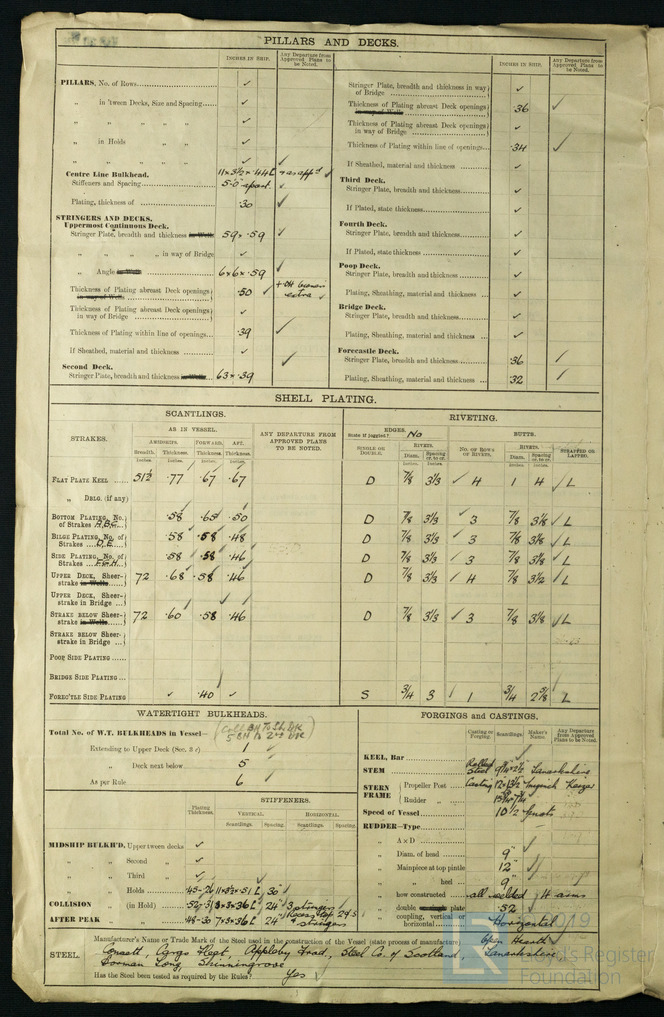 PILLARS AND DECKS.
INCHES IN SHIP. Any Departure from Approved Plans to be Noted.
PILLARS, No. of Rows ✓
„ in 'tween Decks, Size and Spacing ✓
„ „ „ „ ✓
„ in Holds ✓
„ „ „ „ ✓ ✓
Centre Line Bulkhead. 11 x 3½ x .44 L
Stiffeners and Spacing 5-0 apart ✓
Plating, thickness of .30 ✓
STRINGERS AND DECKS.
Uppermost Continuous Deck.
Stringer Plate, breadth and thickness in Wells 59 x .59 ✓
„ „ „ „ in way of Bridge ✓
„ Angle in Wells 6 x 6 x .59 ✓
Thickness of Plating abreast Deck openings in way of Wells .50 ✓ extra ✓
Thickness of Plating abreast Deck openings in way of Bridge ✓
Thickness of Plating within line of openings .39 ✓
If Sheathed, material and thickness ✓
Second Deck.
Stringer Plate, breadth and thickness in Wells 63 x .39 ✓
INCHES IN SHIP. Any Departure from Approved Plans to be Noted.
Stringer Plate, breadth and thickness in way of Bridge ✓
Thickness of Plating abreast Deck openings in way of Wells .36 ✓
Thickness of Plating abreast Deck openings in way of Bridge ✓
Thickness of Plating within line of openings .34 ✓
If Sheathed, material and thickness ✓
Third Deck.
Stringer Plate, breadth and thickness ✓
If Plated, state thickness ✓
Fourth Deck.
Stringer Plate, breadth and thickness ✓
If Plated, state thickness ✓
Poop Deck.
Stringer Plate, breadth and thickness ✓
Plating, Sheathing, material and thickness ✓
Bridge Deck.
Stringer Plate, breadth and thickness ✓
Plating, Sheathing, material and thickness ✓
Forecastle Deck.
Stringer Plate, breadth and thickness .36 ✓
Plating, Sheathing, material and thickness .32 ✓
SHELL PLATING.
SCANTLINGS. RIVETING.
STRAKES. AS IN VESSEL. ANY DEPARTURE FROM APPROVED PLANS TO BE NOTED. EDGES. State if joggled? No BUTTS.
AMIDSHIPS. FORWARD. AFT. SINGLE OR DOUBLE. RIVETS. NO. OF ROWS OF RIVETS. RIVETS. STRAPPED OR LAPPED.
Breadth. Thickness. Thickness. Thickness. Diam. Spacing cr. to cr. Diam. Spacing cr. to cr.
Inches. Inches. Inches. Inches. Inches. Inches.
FLAT PLATE KEEL 51½ .77 .67 .67 D 7/8 3⅓ ✓ 4 1 4 ✓ L
„ DBLG. (if any)
BOTTOM PLATING, No. of Strakes A,B,C .58 .65 .50 D 7/8 3⅓ ✓ 3 7/8 3⅛ ✓ L
BILGE PLATING, No. of Strakes D, E .58 .58 .48 D 7/8 3⅓ ✓ 3 7/8 3⅛ ✓ L
SIDE PLATING, No. of Strakes F,G,H .58 .58 .46 D 7/8 3⅓ ✓ 3 7/8 3⅛ ✓ L
UPPER DECK, Sheerstrake in Wells 72 .68 .58 .46 D 7/8 3⅓ ✓ 4 7/8 3½ ✓ L
UPPER DECK, Sheerstrake in Bridge
STRAKE BELOW Sheerstrake in Wells 72 .60 .58 .46 D 7/8 3⅓ ✓ 3 7/8 3⅛ ✓ L
STRAKE BELOW Sheerstrake in Bridge
POOP SIDE PLATING
BRIDGE SIDE PLATING
FOREC'TLE SIDE PLATING ✓ .40 ✓ S 3/4 3 1 3/4 2⅝ L
WATERTIGHT BULKHEADS.
Total No. of W.T. BULKHEADS in Vessel—
Extending to Upper Deck (Sec. 3 c) 1
„ Deck next below 5
As per Rule 6 ✓
STIFFENERS.
Plating Thickness. VERTICAL. HORIZONTAL.
Scantlings. Spacing. Scantlings. Spacing.
MIDSHIP BULKH'D, Upper tween decks ✓
„ „ Second „ ✓
„ „ Third „ ✓
„ „ Holds .43-.26 11x3½x.51 L 30" ✓
COLLISION „ (in Hold) 24" 3 stringers
AFTER PEAK „ „ .48-.30 7x3x.36 L 24"
FORGING and CASTINGS.
Casting or Forging. Scantlings. Maker's Name. Any Departure from Approved Plans to be Noted.
KEEL, Bar ✓
STEM Rolled Steel Lanarkshire
STERN FRAME Propeller Post Casting
Rudder „
Speed of Vessel 10½ knots
RUDDER—Type
„ A x D
„ Diam. of head 9" ✓
„ Mainpiece at top pintle 12" ✓
„ „ heel 9"
„ how constructed all welded / 4 arms
„ double plate .52
„ coupling, vertical or horizontal Horizontal
STEEL. Manufacturer's Name or Trade Mark of the Steel used in the construction of the Vessel (state process of manufacture) Open Hearth
Consett, Cargo Fleet, Appleby Frod, Steel Co. of Scotland, Lanarkshire
Dorman Long, Skinningrove
Has the Steel been tested as required by the Rules? Yes
© 2019
LR
Lloyd's Register
Foundation